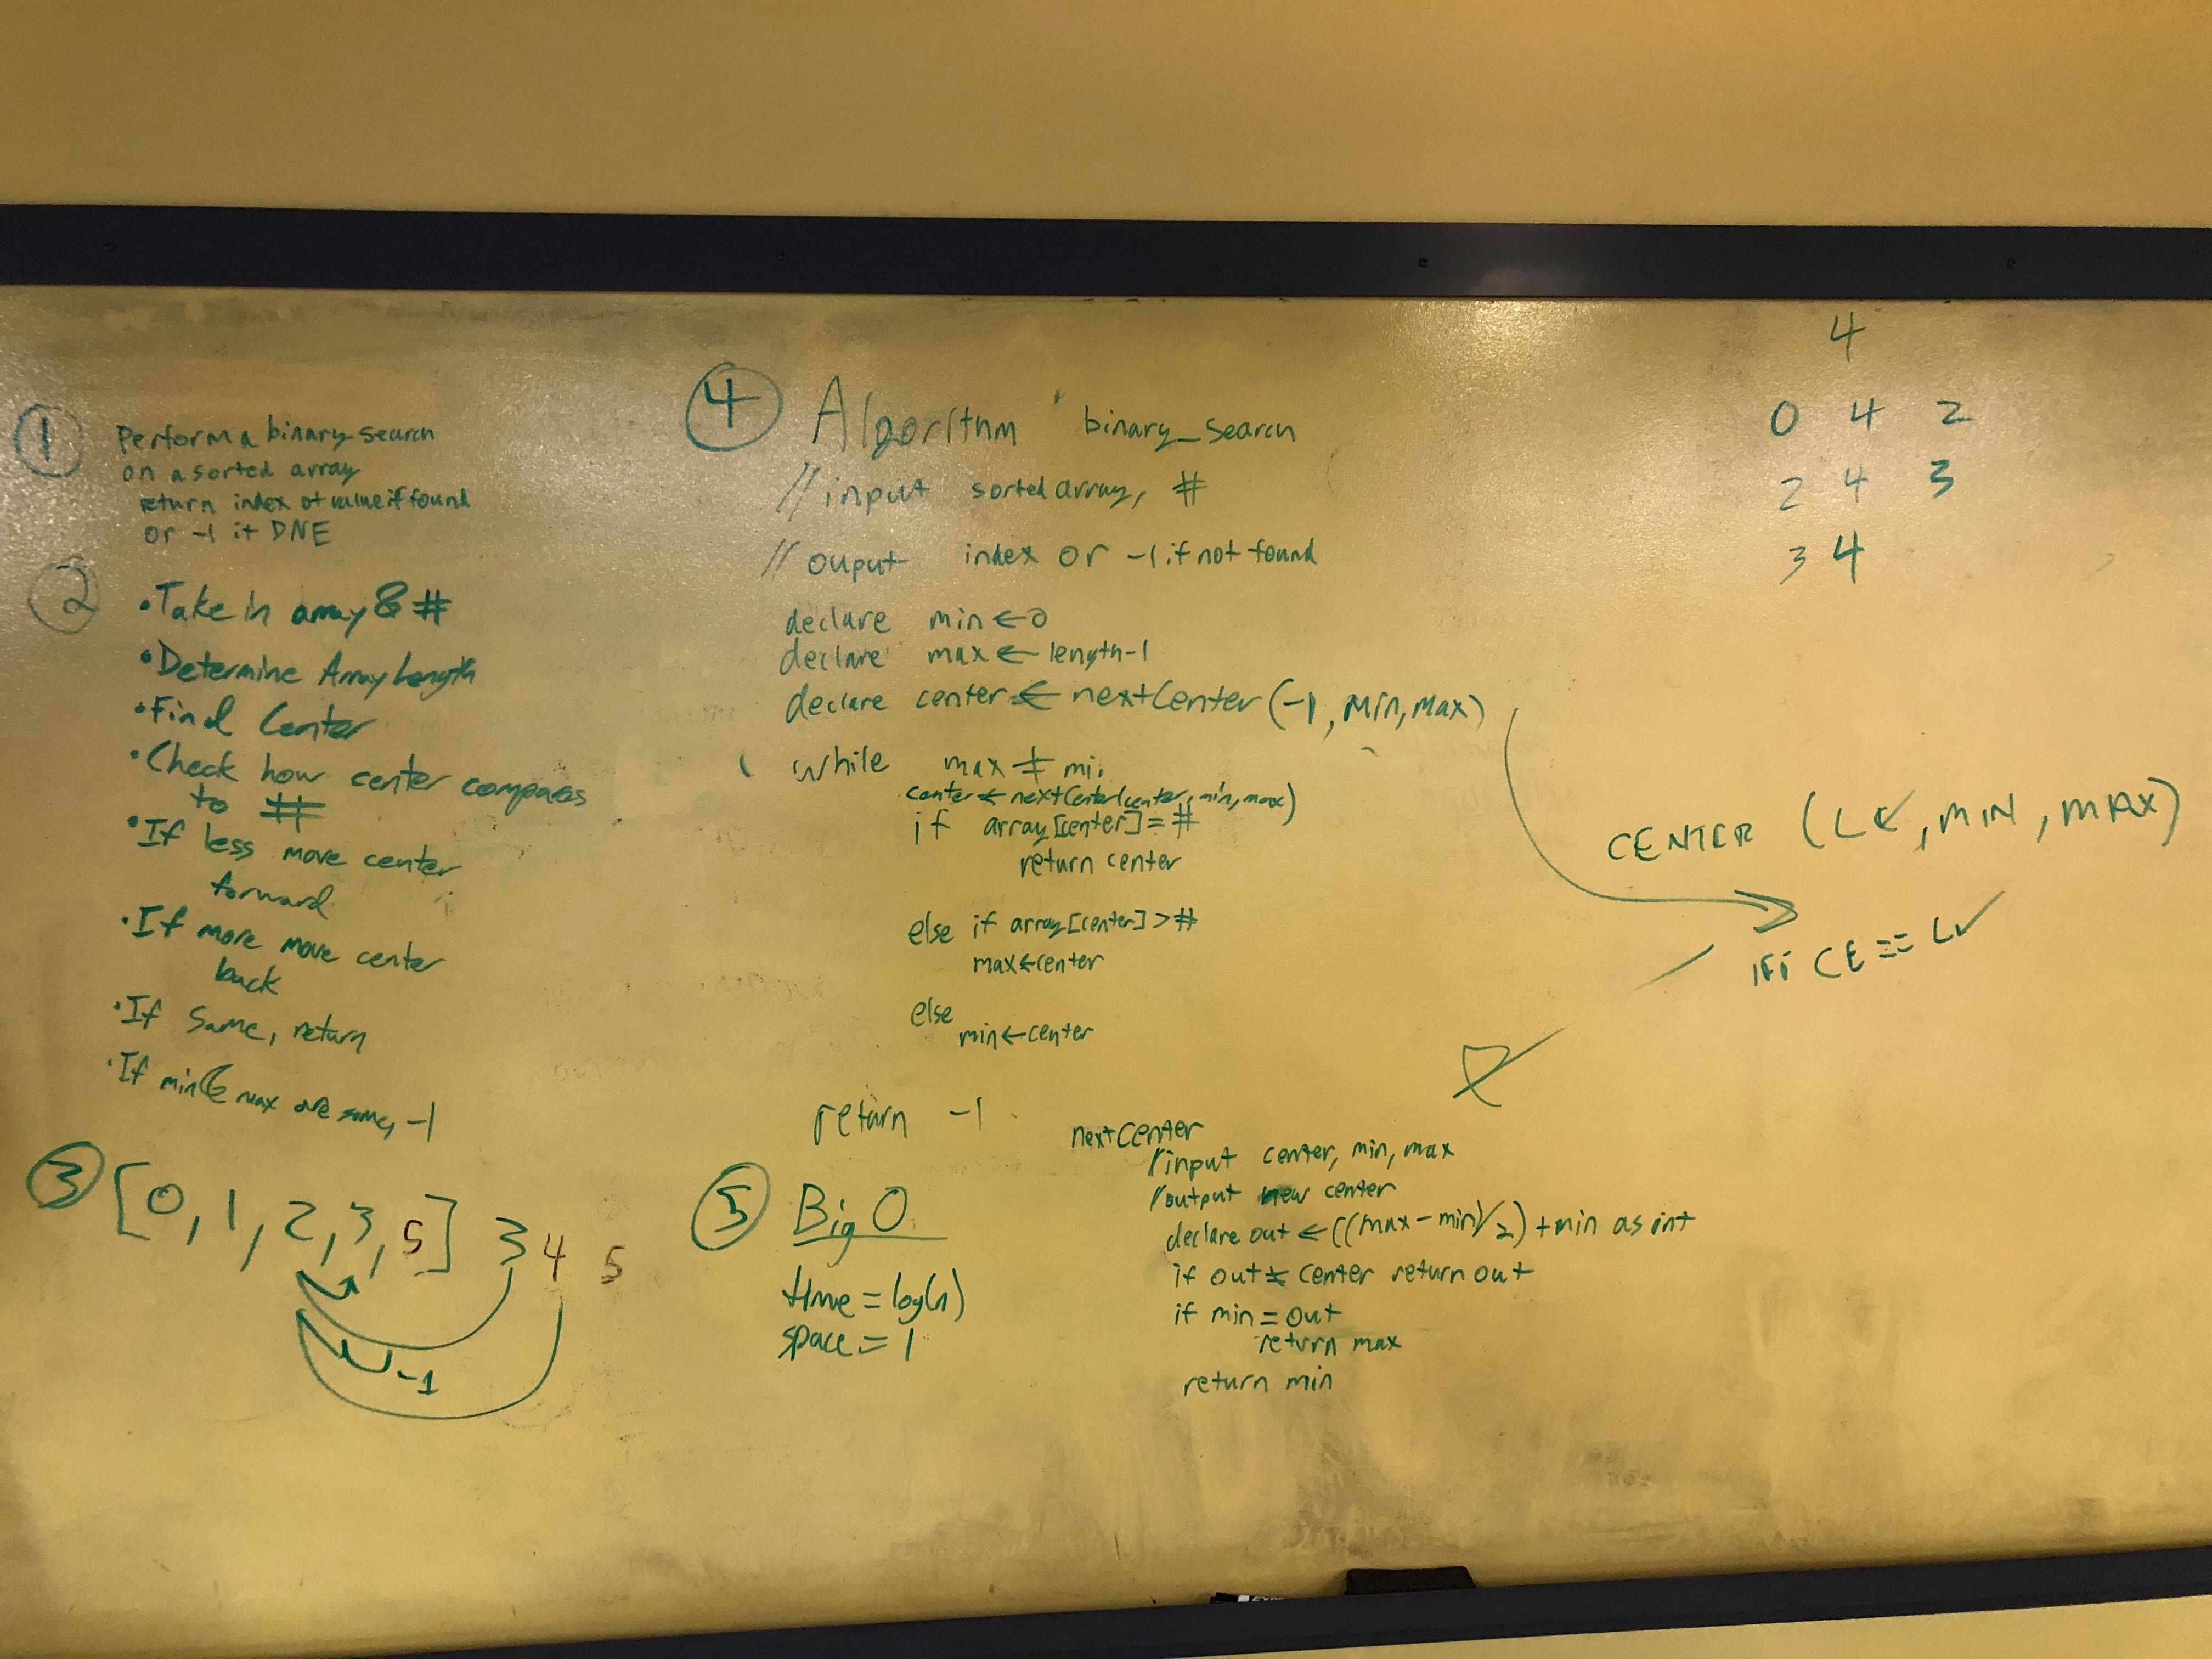 ①
Perform a binary search
on a sorted array
return index of value if found
or -1 if DNE
②
• Take in array & #
• Determine Array Length
• Find Center
• Check how center compares
to #
• If less move center
forward
• If more move center
back
• If same, return
• If min & max are same, -1
③ [0, 1, 2, 3, 5] 3 4 5
-1
④ Algorithm binary_search
// input sorted array, #
// ouput index or -1 if not found
declare min ← 0
declare max ← length-1
declare center ← nextCenter(-1, Min, Max)
while max ≠ min
center ← nextCenter(center, min, max)
if array[center] = #
return center
else if array[center] > #
max ← center
else
min ← center
return -1
⑤ Big O
time = log(n)
space = 1
nextCenter
/input center, min, max
/output new center
declare out ← ((max - min)/2) + min as int
if out ≠ center return out
if min = out
return max
return min
4
0 4 2
2 4 3
3 4
CENTER (LC, MIN, MAX)
CE ==